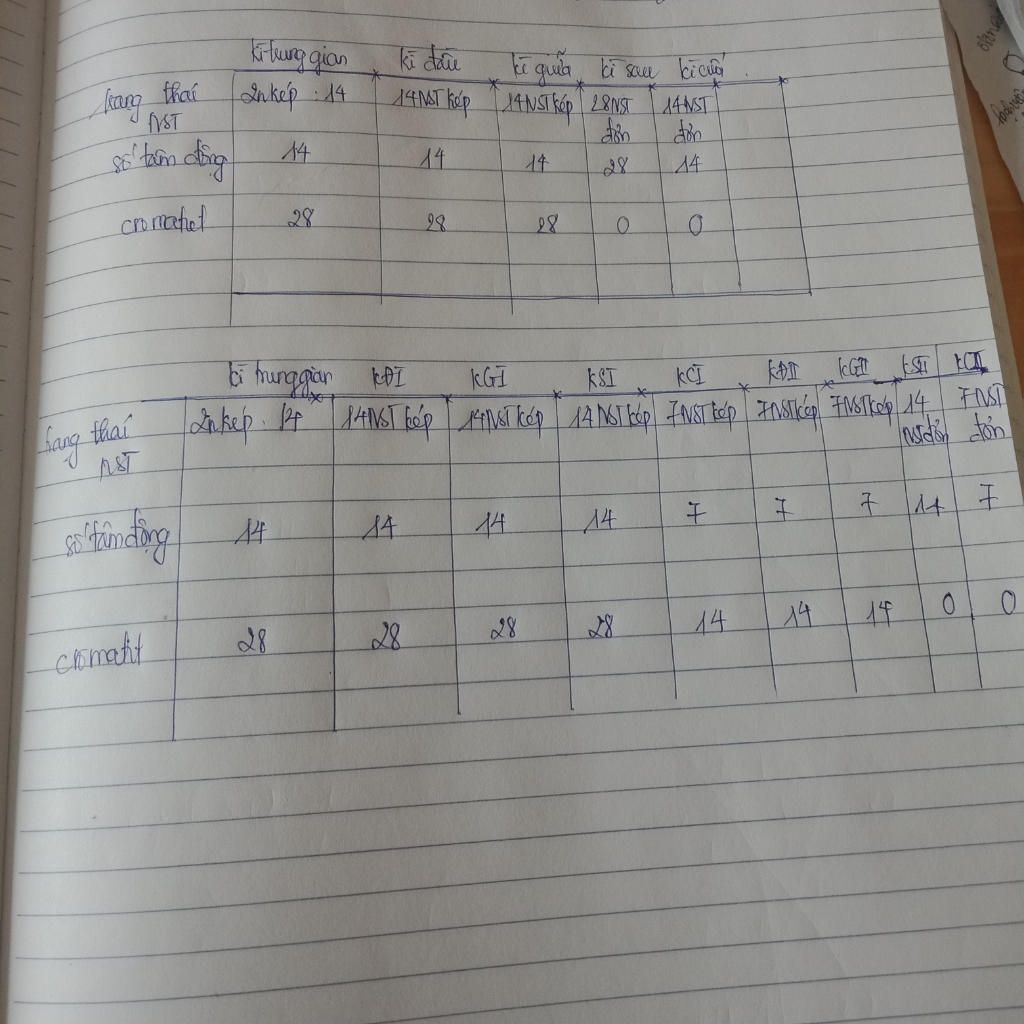 kì trung gian kì đầu kì giữa kì sau kì cuối
trạng thái 2n kép : 14 14NST kép 14NST kép 28NST 14NST
NST đơn đơn
số tâm động 14 14 14 28 14
cromatit 28 28 28 0 0
kì trung gian kĐI kGI kSI kCI kĐII kGII kSII kCII
trạng thái 2n kép : 14 14NST kép 14NST kép 14NST kép 7NST kép 7NST kép 7NST kép 14 7NST
NST NST đơn đơn
số tâm động 14 14 14 14 7 7 7 14 7
cromatit 28 28 28 28 14 14 14 0 0